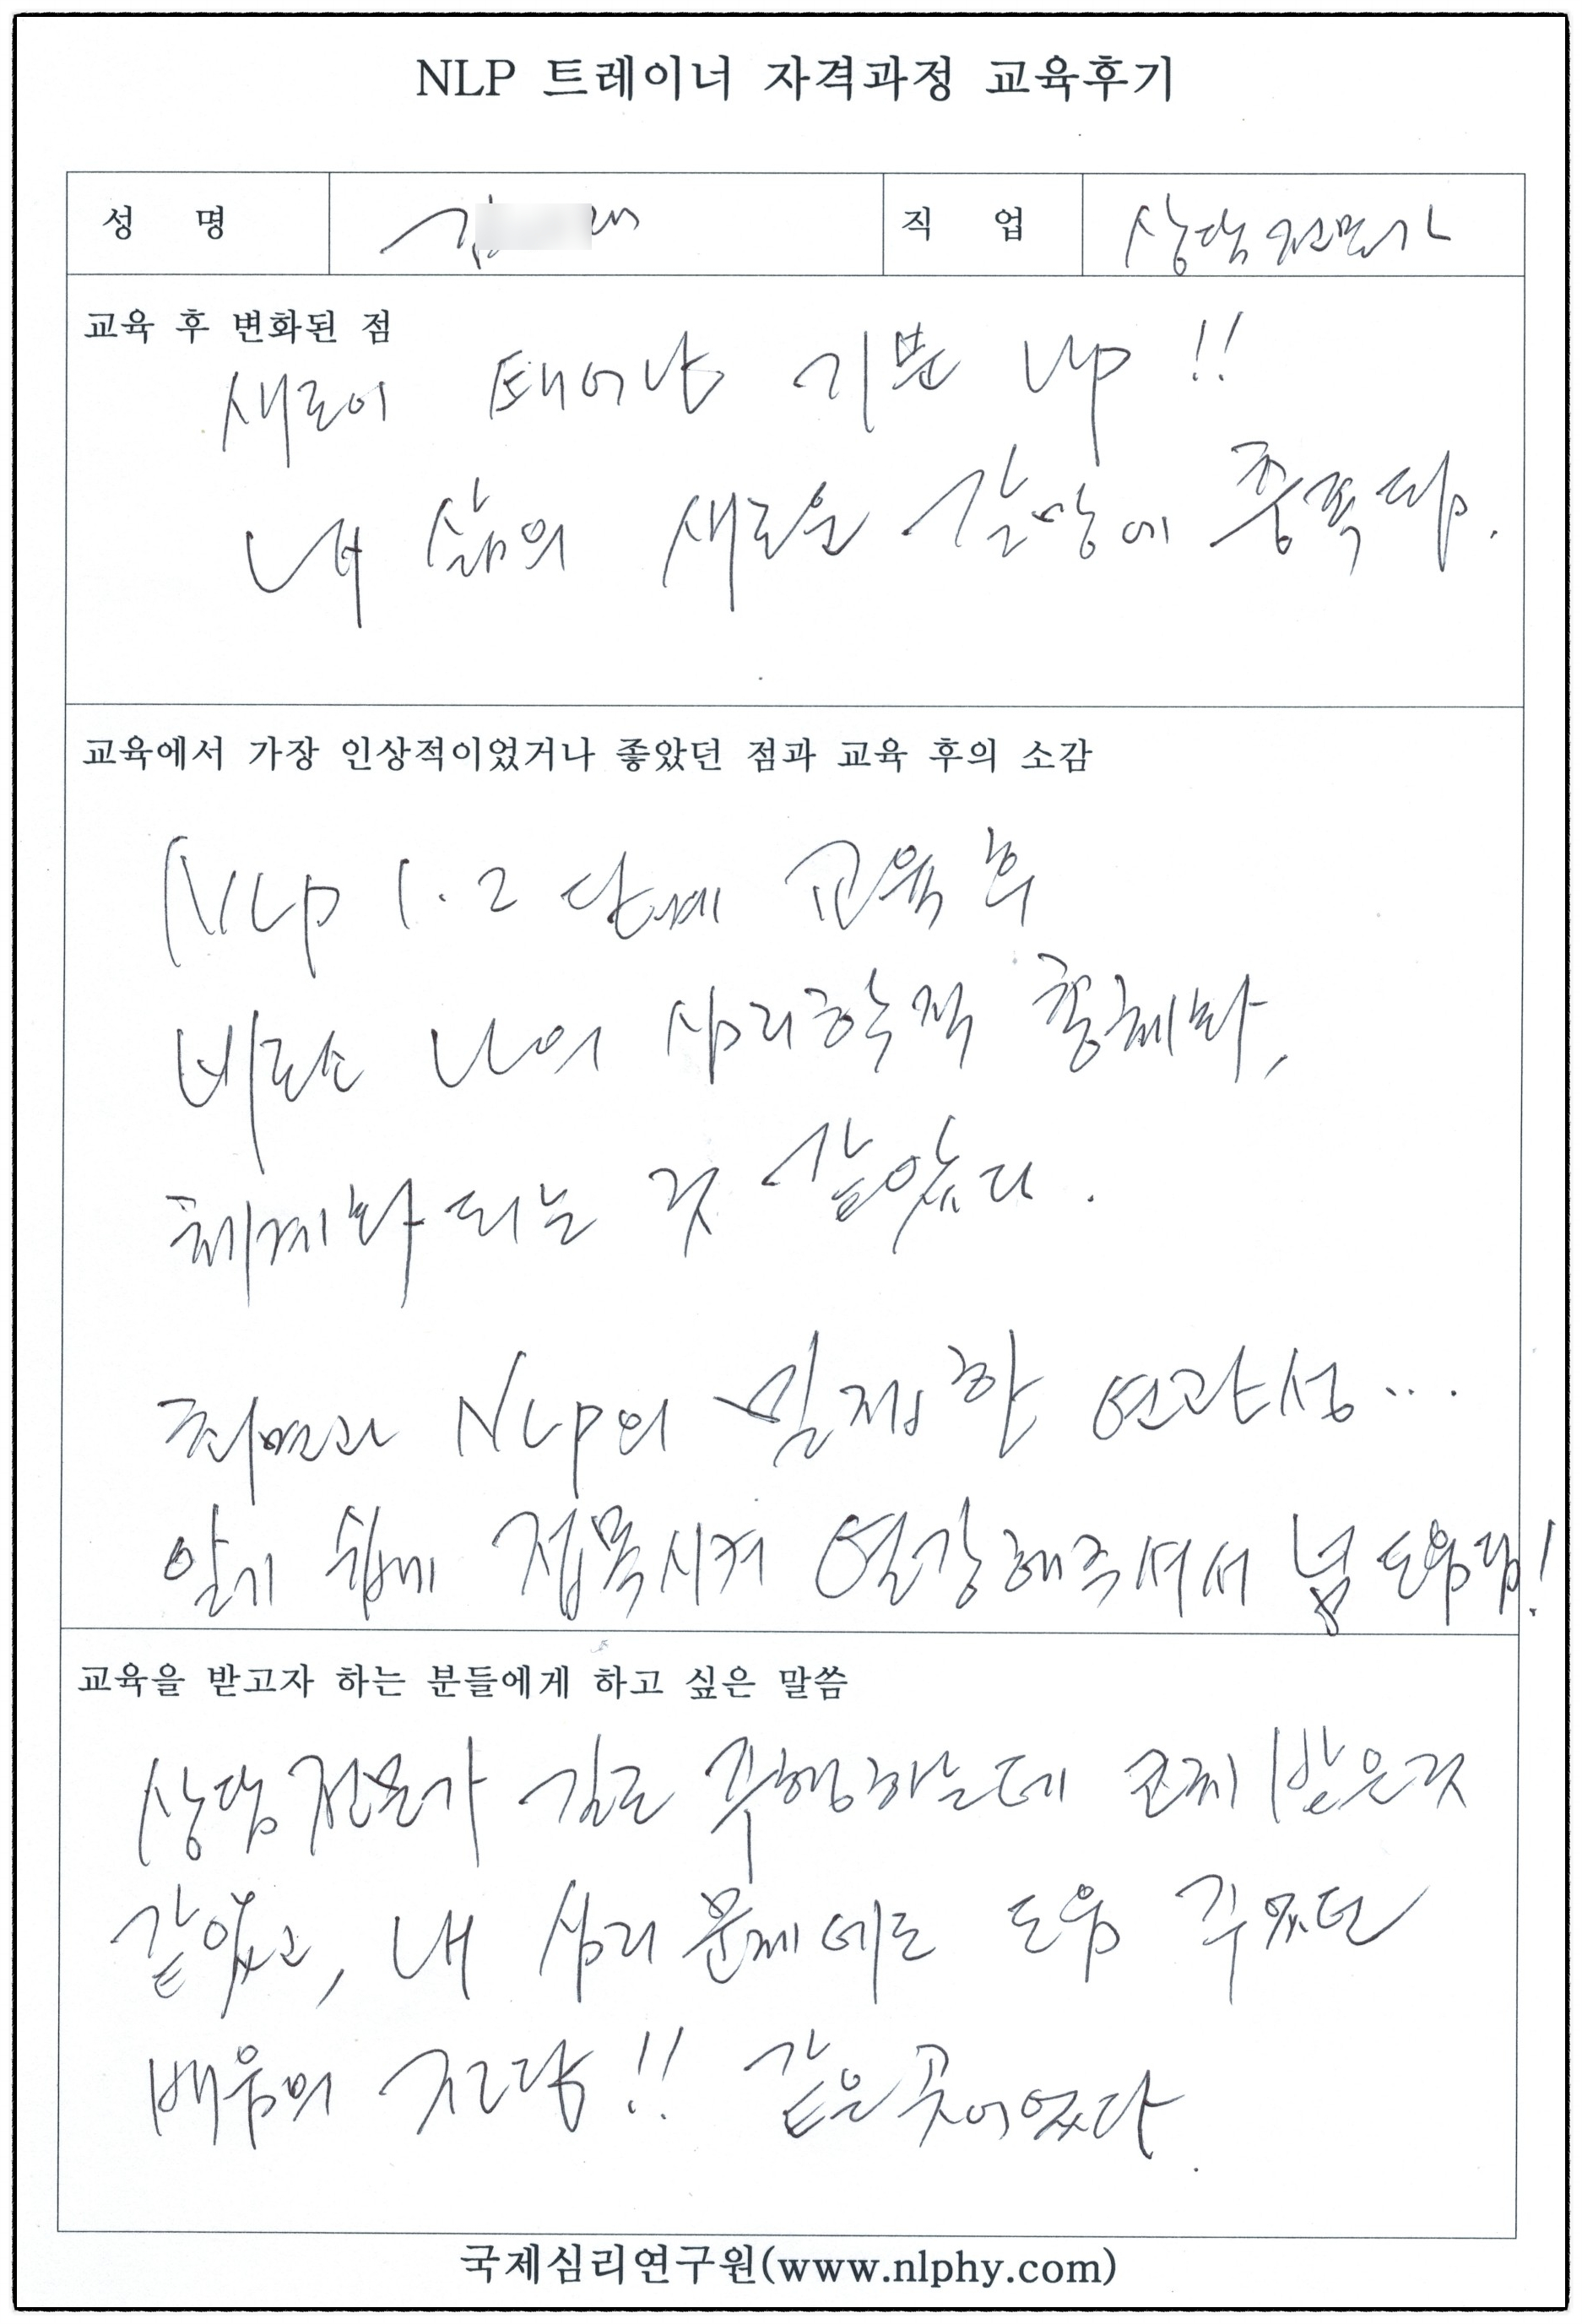 NLP 트레이너 자격과정 교육후기
성 명 김 직 업 상담전문가
교육 후 변화된 점
새로이 태어남 기분 up !!
내 삶의 새로운 갈망에 증폭됨.
교육에서 가장 인상적이었거나 좋았던 점과 교육 후의 소감
NLP 1.2 단계 교육 후
비로소 나의 심리학적 통합화,
체계화 되는 것 같았다.
최면과 NLP의 밀접한 연관성...
알기 쉽게 접목시켜 열강해주셔서 넘 도움됨!
교육을 받고자 하는 분들에게 하고 싶은 말씀
상담전문가 길로 주행하는데 코치 받은것
같았고, 내 심리 문제에도 도움 주었던
배움의 전당!! 같은 곳이었다.
국제심리연구원(www.nlphy.com)